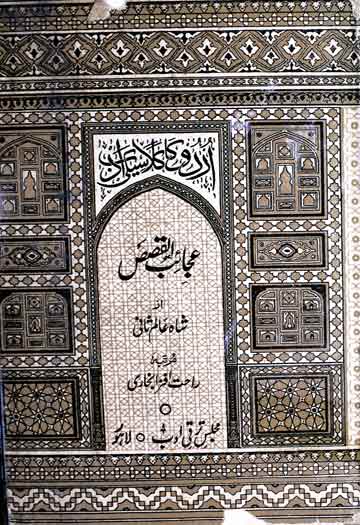 اُردو کا کلاسیکی ادب
عجائب القصص
از
شاہ عالم ثانی
مرتبہ
راحت افزا بخاری
مجلس ترقی ادب ○ لاہور